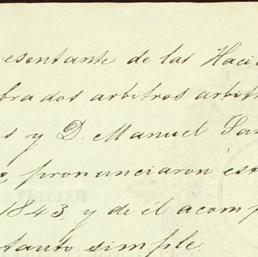 resentante de las Haci
brados arbitros arbit
s y D. Manuel Sa
pronunciaron es
1843 y de él acomp
tanto simple.